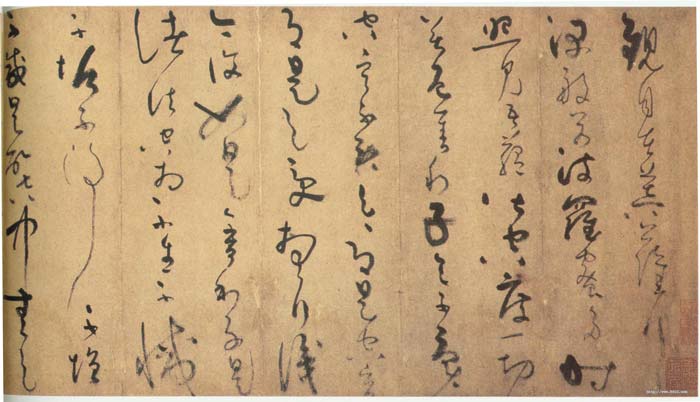 觀自在菩薩行
深般若波羅蜜多時
照見五蘊皆空度一切
苦厄舍利子色不異
空空不異色色即是空空
即是色受想行識
亦復如是舍利子是
諸法空相不生不滅
不垢不淨不增
不減是故空中無色